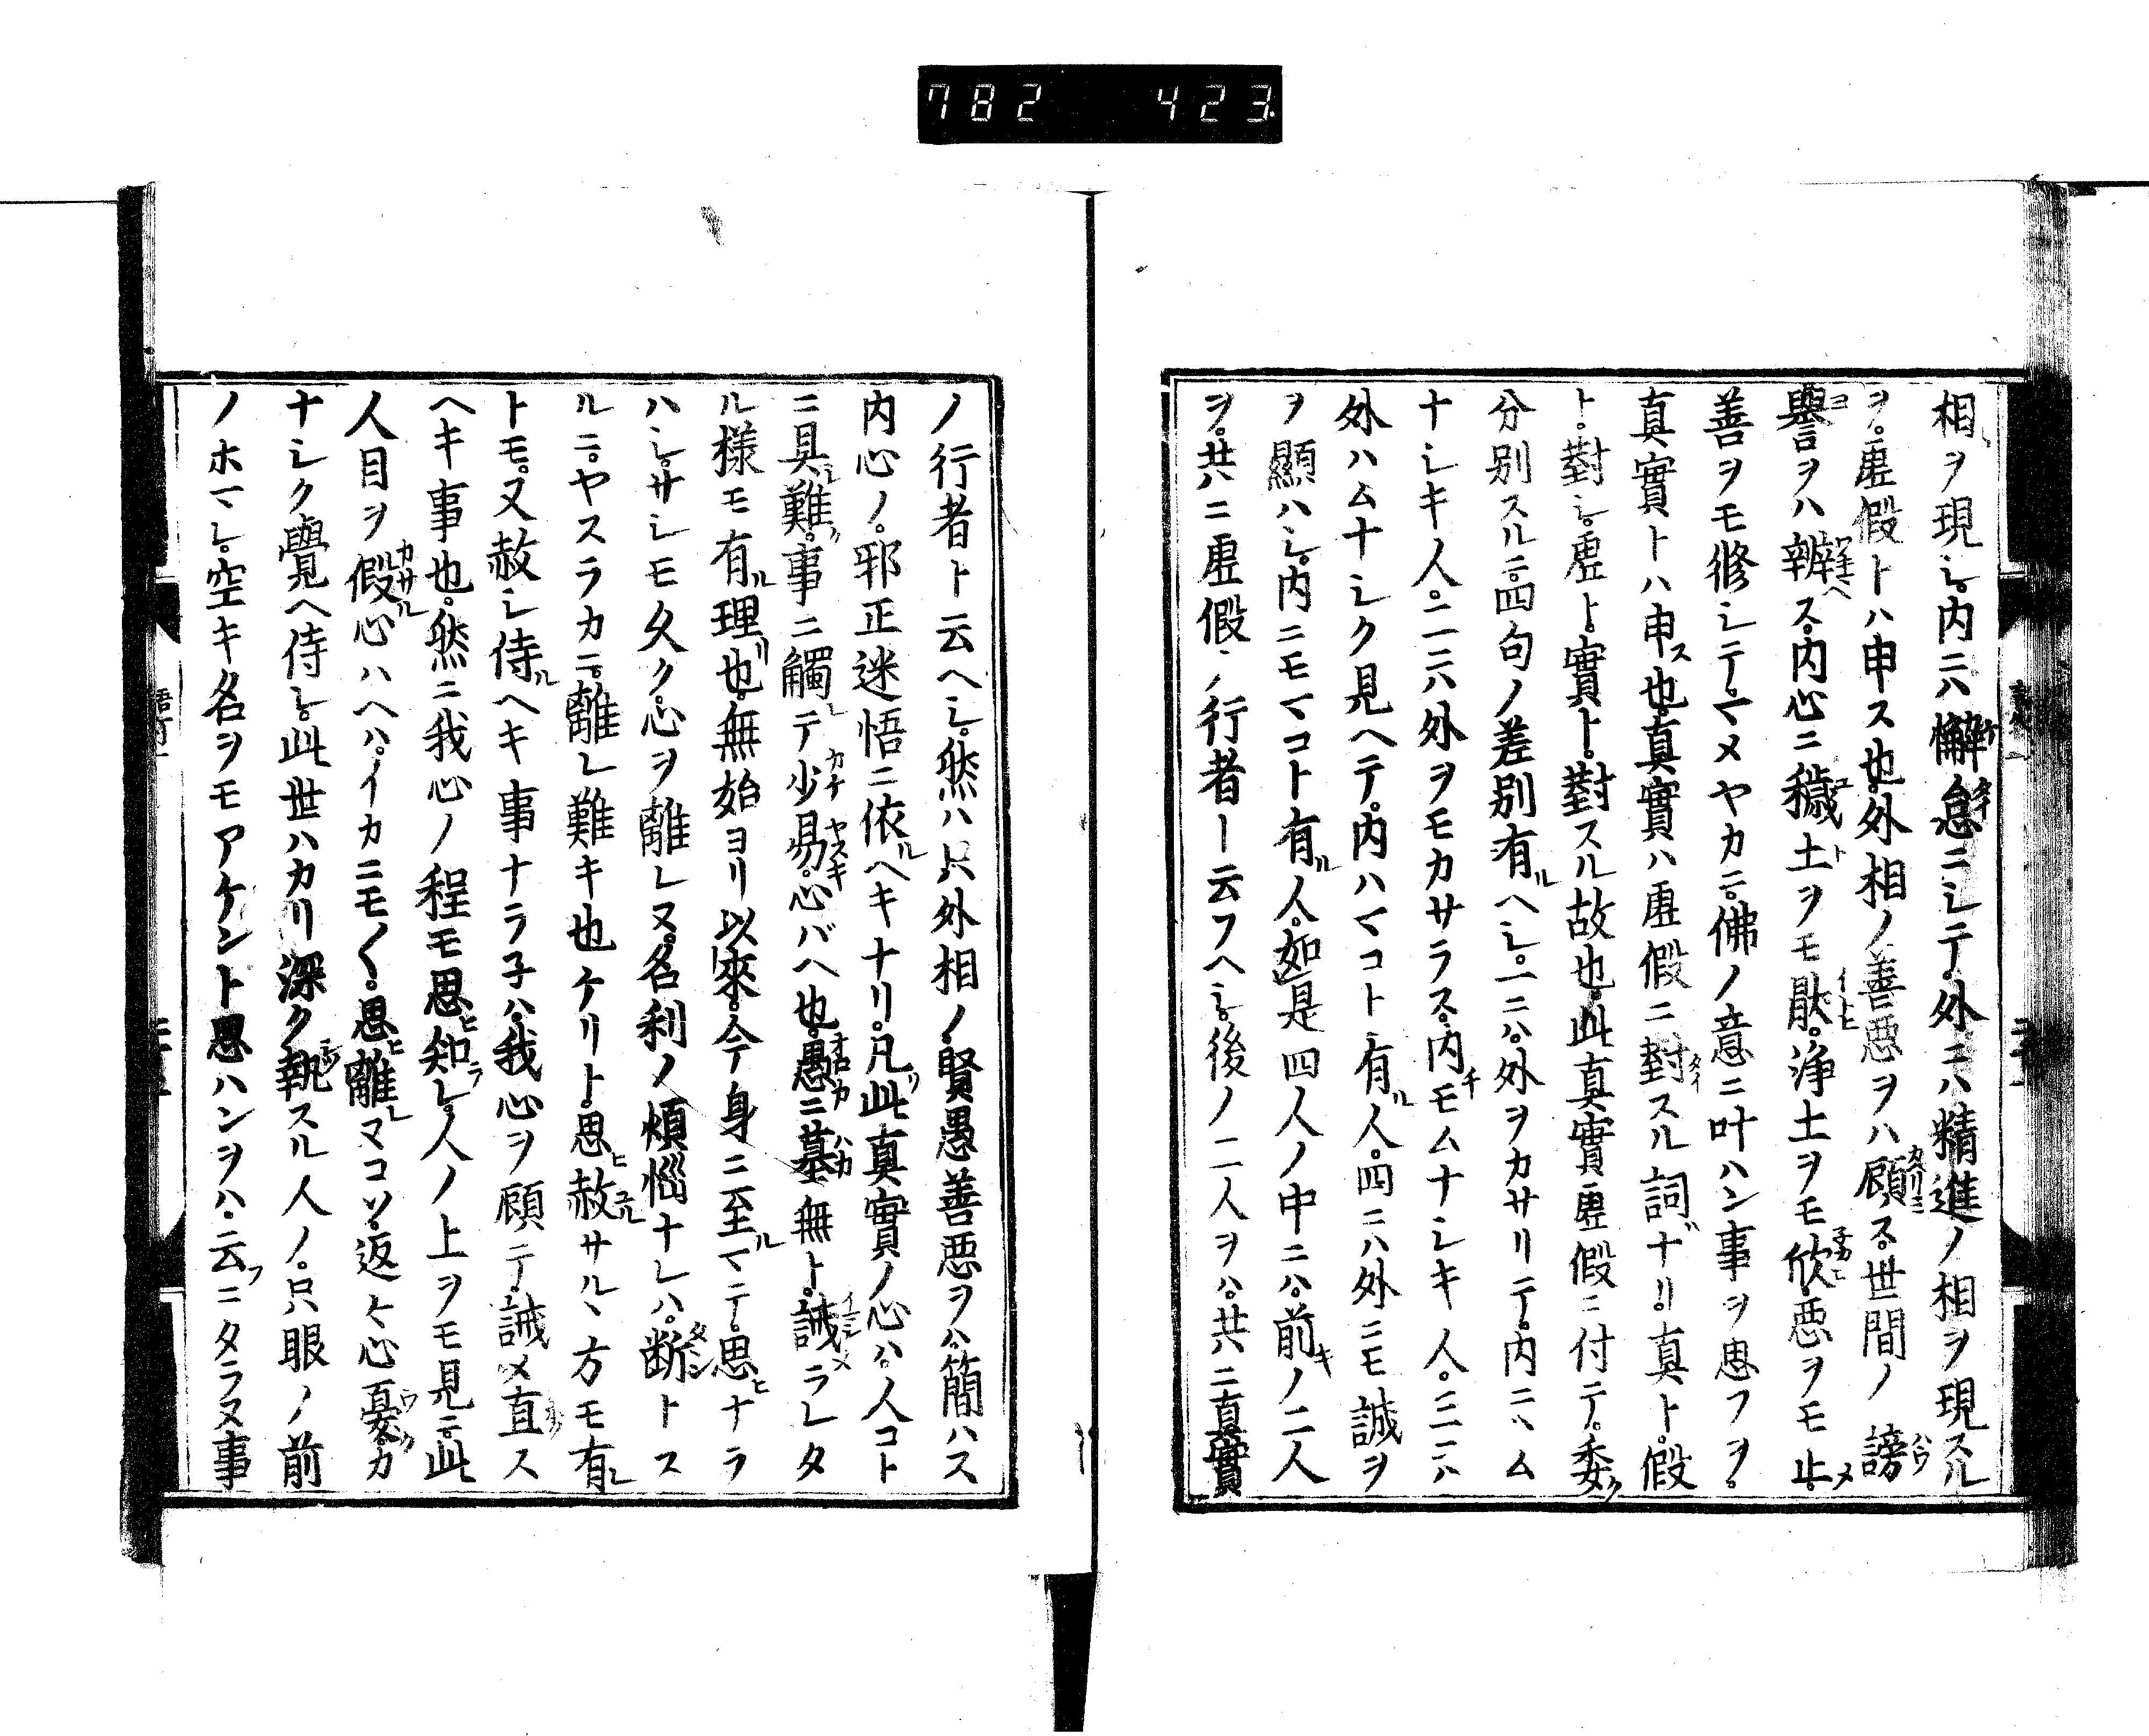 782 423
相ヲ現シ。内ニハ懈怠ニシテ。外ニハ精進ノ相ヲ現スル
ヲ。虚假トハ申ス也。外相ノ善悪ヲハ顧ス。世間ノ謗
譽ヲハ辨ス。内心ニ穢土ヲモ厭。浄土ヲモ欣。悪ヲモ止メ
善ヲモ修シテ。マメヤカニ。佛ノ意ニ叶ハン事ヲ思フヲ。
真實トハ申ス也。真實ハ虚假ニ對スル詞ナリ。真ト。假
ト。對シ。虚ト。實ト。對スル故也。此真實虚假ニ付テ。委ク
分別スルニ。四句ノ差別有ルヘシ。一ニハ。外ヲカサリテ。内ニハム
ナシキ人。二ニハ外ヲモカサラス。内モムナシキ人。三ニハ
外ハムナシク見ヘテ。内ハマコト有ル人。四ニハ外ニモ誠ヲ
ヲ顯ハシ。内ニモマコト有ル人。如是四人ノ中ニハ。前キノ二人
ヲ。共ニ虚假ノ行者ト云フヘシ。後ノ二人ヲハ。共ニ真實
ノ行者ト云ヘシ。然ハ只外相ノ。賢愚善悪ヲハ。簡ハス
内心ノ。邪正迷悟ニ依ルヘキナリ。凡ソ此真實ノ心ハ。人コト
ニ具シ難ク。事ニ觸レテ少易。心バヘ也。愚ニ墓無ト。誡メラレタ
ル様モ有ル理リ也。無始ヨリ以來。今身ニ至ルマテ。思ヒナラ
ハシ。サシモ久ク。心ヲ離レヌ。名利ノ煩惱ナレハ。断トス
ルニ。ヤスラカニ。離レ難キ也ケリト。思ヒ赦サルヽ方モ有レ
トモ。又赦シ侍ルヘキ事ナラ子ハ。我心ヲ顧テ。誡メ直ス
ヘキ事也。然ニ我心ノ程モ思ヒ知レ。人ノ上ヲモ見ニ。此
人目ヲ假ル心ハヘハ。イカニモ〱。思ヒ離レマコソ。返々心憂ク。カ
ナシク覺ヘ侍レ。此世ハカリ深ク執スル人ノ。只眼ノ前
ノホマレ。空キ名ヲモアケント思ハンヲハ。云フニタラヌ事